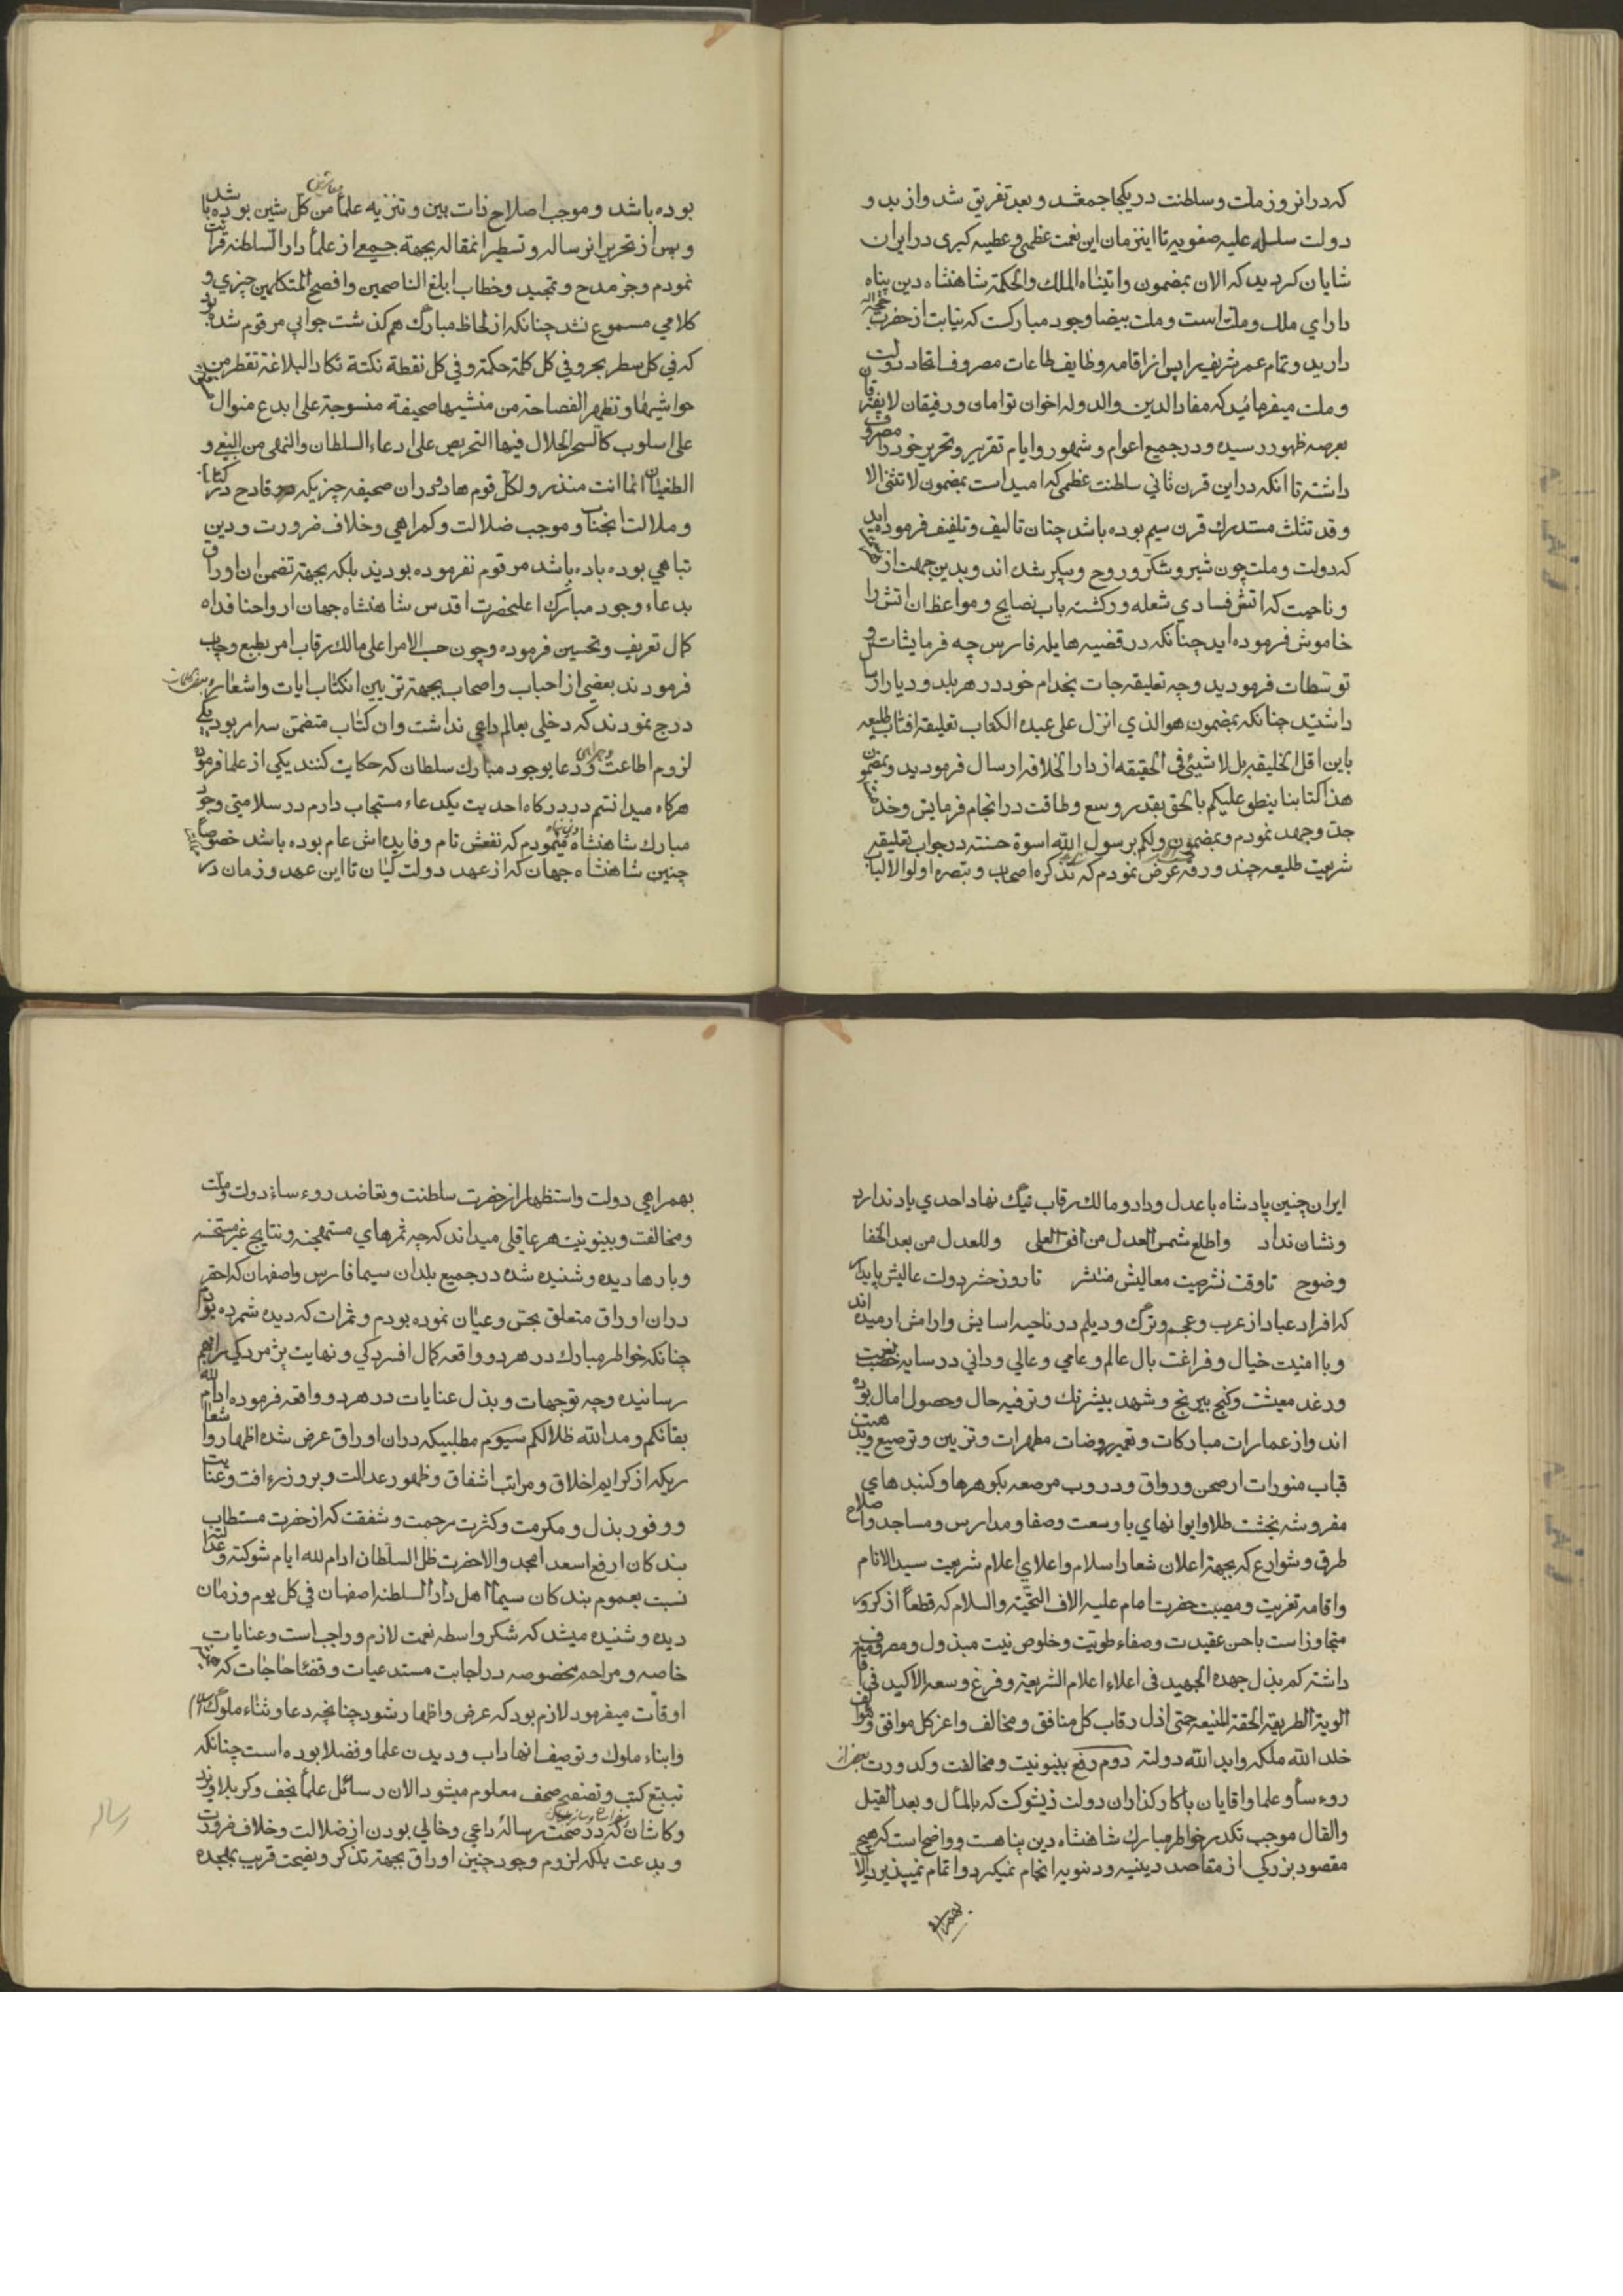 که درانروز ملت و سلطنت در یکجا جمع شد و بعد تفریق شد واز بدو
دولت سلسله علیه صفویه تا اینزمان این نعمت عظمی و عطیه کبری در ایران
شایان کردید که الان بمضمون واتیناه الملك والحکمة شاهنشاه دین پناه
دارای ملك وملت است و ملت بیضا وجود مبارکست که نیابت از حضرت حجة الله
دارید و تمام عمر شریف را پس از اقامه وظایف طاعات مصروف اتحاد دولت
و ملت میفرمائید که مفاد الدین والدوله اخوان توامان و رفیقان لا یفترقان
بعرصه ظهور رسیده و در جمیع اعوام و شهور وایام تقریر و تحریر خود را مصروف
داشته تا انکه دراین قرن ثانی سلطنت عظمی که امید است بمضمون لا تثنی الا
و قد تثلث مستدرك قرن سیم بوده باشد چنان تالیف و تلفیف فرموده اید
که دولت و ملت چون شیر و شکر و روح و پیکر شده اند و بدین جهت از
و ناحیت که اتش فسادی شعله ور کشته باب نصایح و مواعظ ان اتش را
خاموش فرموده اید چنانکه در قضیه هایله فارس چه فرمایشات و
توسطات فرمودید و چه تعلیقه جات بخدام خود در هر بلد و دیار ارسال
داشتید چنانکه بمضمون هو الذی انزل علی عبده الکتاب تعلیقه افتاب طلیعه
باین اقل الخلیقه بل لا شیئی فی الحقیقه از دار الخلافه ارسال فرمودید و بمضمون
هذا کتابنا ینطق علیکم بالحق بقدر وسع و طاقت در انجام فرمایش و خدمت
جد و جهد نمودم و بمضمون ولکم برسول الله اسوة حسنة در جواب تعلیقه
شریعت طلیعه چند ورقه عرض نمودم که تذکره اصحاب و تبصره اولوا الالباب
بوده باشد و موجب اصلاح ذات بین و تنزیه علما من کل شین بوده باشد
و پس از تحریر انرساله و تسطیر انمقاله بجهة جمعی از علما دار السلطنه قرائت
نمودم و جز مدح و تمجید و خطاب ابلغ الناصحین و افصح المتکلمین چیزی و
کلامی مسموع نشد چنانکه از لحاظ مبارك هم کذشت جوابی مرقوم شده بود
که فی کل سطر بحر و فی کل کلمة حکمة و فی کل نقطة نکتة تکاد البلاغة تقطر من
حواشیها و تظهر الفصاحة من منشیها صحیفة منسوجة علی ابدع منوال
علی اسلوب کالسحر الحلال فیها التحریص علی ادعاء السلطان والنهی من البغی و
الطغیان انما انت منذر و لکل قوم هاد و دران صحیفه چیزیکه قادح در کتاب
و ملالت انجناب و موجب ضلالت و کمراهی و خلاف ضرورت و دین
تباهی بوده باده باشد مرقوم نفرموده بودید بلکه بجهة تضمن ان اوراق
بدعاء وجود مبارك اعلیحضرت اقدس شاهنشاه جهان ارواحنا فداه
کمال تعریف و تحسین فرموده و چون حسب الامر اعلی مالك رقاب امر بطبع و چاپ
فرمودند بعضی از احباب و اصحاب بجهة تزیین انکتاب ایات و اشعار و بعض کلمات
درج نمودند که دخلی بعالم داعی نداشت وان کتاب متضمن سه امر بود یکی
لزوم اطاعت و همراهی و دعا بوجود مبارك سلطان که حکایت کنند یکی از علما فرموده
هرکاه میدانستم در درکاه احدیت یکدعاء مستجاب دارم در سلامتی وجود
مبارك شاهنشاه مینمودم که نفعش تام و فایده اش عام بوده باشد خصوصا
چنین شاهنشاه جهان که از عهد دولت کیان تا این عهد و زمان در
ایران چنین پادشاه باعدل و داد و مالك رقاب نیك نهاد احدی یاد ندارد
و نشان نداد واطلع شمس العدل من افق العلی وللعدل من بعد الخفا
وضوح تا وقت نشر صیت معالیش منتشر تا روز حشر دولت عالیش پایدار
که افراد عباد از عرب و عجم و ترك و دیلم در ناحیه اسایش و ارامش ارمیده اند
و با امنیت خیال و فراغت بال عالم و عامی و عالی و دانی در سایه خصب نعمت
و رغد معیشت و کنج بیرنج و شهد بیشرنك و ترفیه حال و حصول امال بوده
اند واز عمارات مبارکات و تعمیر روضات مطهرات و تزیین و ترصیع و تذهیب
قباب منورات از صحن و رواق و دروب مرصعه بکوهرها و کنبدهای
مفروشه بخشت طلا و ایوانهای با وسعت و صفا و مدارس و مساجد و اصلاح
طرق و شوارع که بجهة اعلان شعار اسلام و اعلای اعلام شریعت سید الانام
و اقامه تعزیت و مصیبت حضرت امام علیه الاف التحیة والسلام که قطعا از کرور
متجاوز است باحسن عقیدت و صفاء طویت و خلوص نیت مبذول و مصروف
داشته کم بذل جهده الجهید فی اعلاء اعلام الشریعة و فرغ وسعه الاکید فی اقامة
الویة الطریقة الحقة المنیعة حتی اذل رقاب کل منافق و مخالف و اعز کل موافق و موالف
خلد الله ملکه و ابد الله دولته دوم رفع بینونیت و مخالفت و کدورت بعض از
روءساء و علما و اقایان با کارکذاران دولت ذیشوکت که بالمأل و بعد القیل
والقال موجب تکدر خواطر مبارك شاهنشاه دین پناهست و واضح است که هیچ
مقصود بزرکی از مقاصد دینیه و دنیویه انجام نمیکیرد و اتمام نمیپذیرد الا
بهمراهی
بهمراهی دولت و استظهار از حضرت سلطنت و تعاضد روءساء دولت و ملت
و مخالفت و بینونیت هر عاقلی میداند که چه ثمرهای مستهجنه و نتایج غیر مستحسنه
و بارها دیده و شنیده شده در جمیع بلدان سیما فارس و اصفهان که احقر
دران اوراق متعلق بحس و عیان نموده بودم و ثمرات که دیده شمرده بودم
چنانکه خواطر مبارك در هر دو واقعه کمال افسردکی و نهایت پژمردکی را بهم
رسانیده و چه توجهات و بذل عنایات در هر دو واقعه فرموده ادام الله
بقائکم و مد الله ظلالکم سیوم مطلبیکه دران اوراق عرض شده اظهار و اشعا
ریکه از کرایم اخلاق و مراتب اشفاق و ظهور عدالت و بروز رءافت و عنایت
و وفور بذل و مکرمت و کثرت مرحمت و شفقت که از حضرت مستطاب
بندکان ارفع اسعد امجد والا حضرت ظل السلطان ادام الله ایام شوکته و عدالته
نسبت بعموم بندکان سیما اهل دار السلطنه اصفهان فی کل یوم و زمان
دیده و شنیده میشد که شکر واسطه نعمت لازم و واجب است و عنایات
خاصه و مراحم مخصوصه در اجابت مستدعیات و قضاء حاجات که
اوقات میفرمود لازم بود که عرض و اظهار شود چنانچه دعا و ثناء ملوك
و ابناء ملوك و توصیف انها داب و دیدن علما و فضلا بوده است چنانکه
تبتبع کتب و تصفیح صحف معلوم میشود الان رسائل علما نجف و کربلا و یزد
و کاشان که در صحت رساله داعی و خالی بودن از ضلالت و خلاف ضرورت
و بدعت بلکه لزوم وجود چنین اوراق بجهة تذکر و نصیحت قریب بهجده
رساله